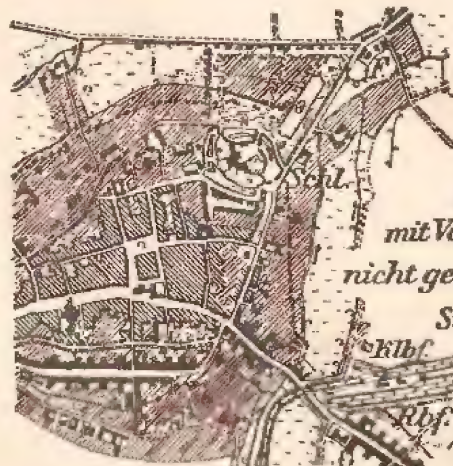 Schl.
mit V
nicht ge
S
Klbf.
Rbf.